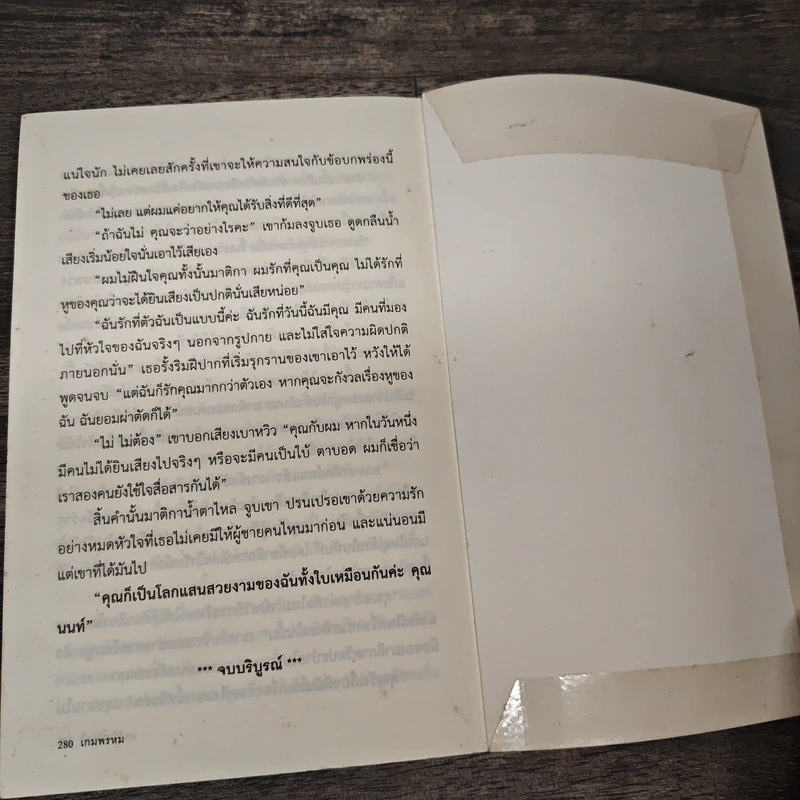 แน่ใจนัก ไม่เคยเลยสักครั้งที่เขาจะให้ความสนใจกับข้อบกพร่องนี้
ของเธอ
“ไม่เลย แต่ผมแค่อยากให้คุณได้รับสิ่งที่ดีที่สุด”
“ถ้าฉันไม่ คุณจะว่าอย่างไรคะ” เขาก้มลงจูบเธอ ดูดกลืนน้ำ
เสียงเริ่มน้อยใจนั่นเอาไว้เสียเอง
“ผมไม่ฝืนใจคุณทั้งนั้นมาติกา ผมรักที่คุณเป็นคุณ ไม่ได้รักที่
หูของคุณว่าจะได้ยินเสียงเป็นปกตินั่นเสียหน่อย”
“ฉันรักที่ตัวฉันเป็นแบบนี้ค่ะ ฉันรักที่วันนี้ฉันมีคุณ มีคนที่มอง
ไปที่หัวใจของฉันจริงๆ นอกจากรูปกาย และไม่ใส่ใจความผิดปกติ
ภายนอกนั่น” เธอรั้งริมฝีปากที่เริ่มรุกรานของเขาเอาไว้ หวังให้ได้
พูดจนจบ “แต่ฉันก็รักคุณมากกว่าตัวเอง หากคุณจะกังวลเรื่องหูของ
ฉัน ฉันยอมผ่าตัดก็ได้”
“ไม่ ไม่ต้อง” เขาบอกเสียงเบาหวิว “คุณกับผม หากในวันหนึ่ง
มีคนไม่ได้ยินเสียงไปจริงๆ หรือจะมีคนเป็นใบ้ ตาบอด ผมก็เชื่อว่า
เราสองคนยังใช้ใจสื่อสารกันได้”
สิ้นคำนั้นมาติกาน้ำตาไหล จูบเขา ปรนเปรอเขาด้วยความรัก
อย่างหมดหัวใจที่เธอไม่เคยมีให้ผู้ชายคนไหนมาก่อน และแน่นอนมี
แต่เขาที่ได้มันไป
“คุณก็เป็นโลกแสนสวยงามของฉันทั้งใบเหมือนกันค่ะ คุณ
นนท์”
*** จบบริบูรณ์ ***
280 เกมพรหม